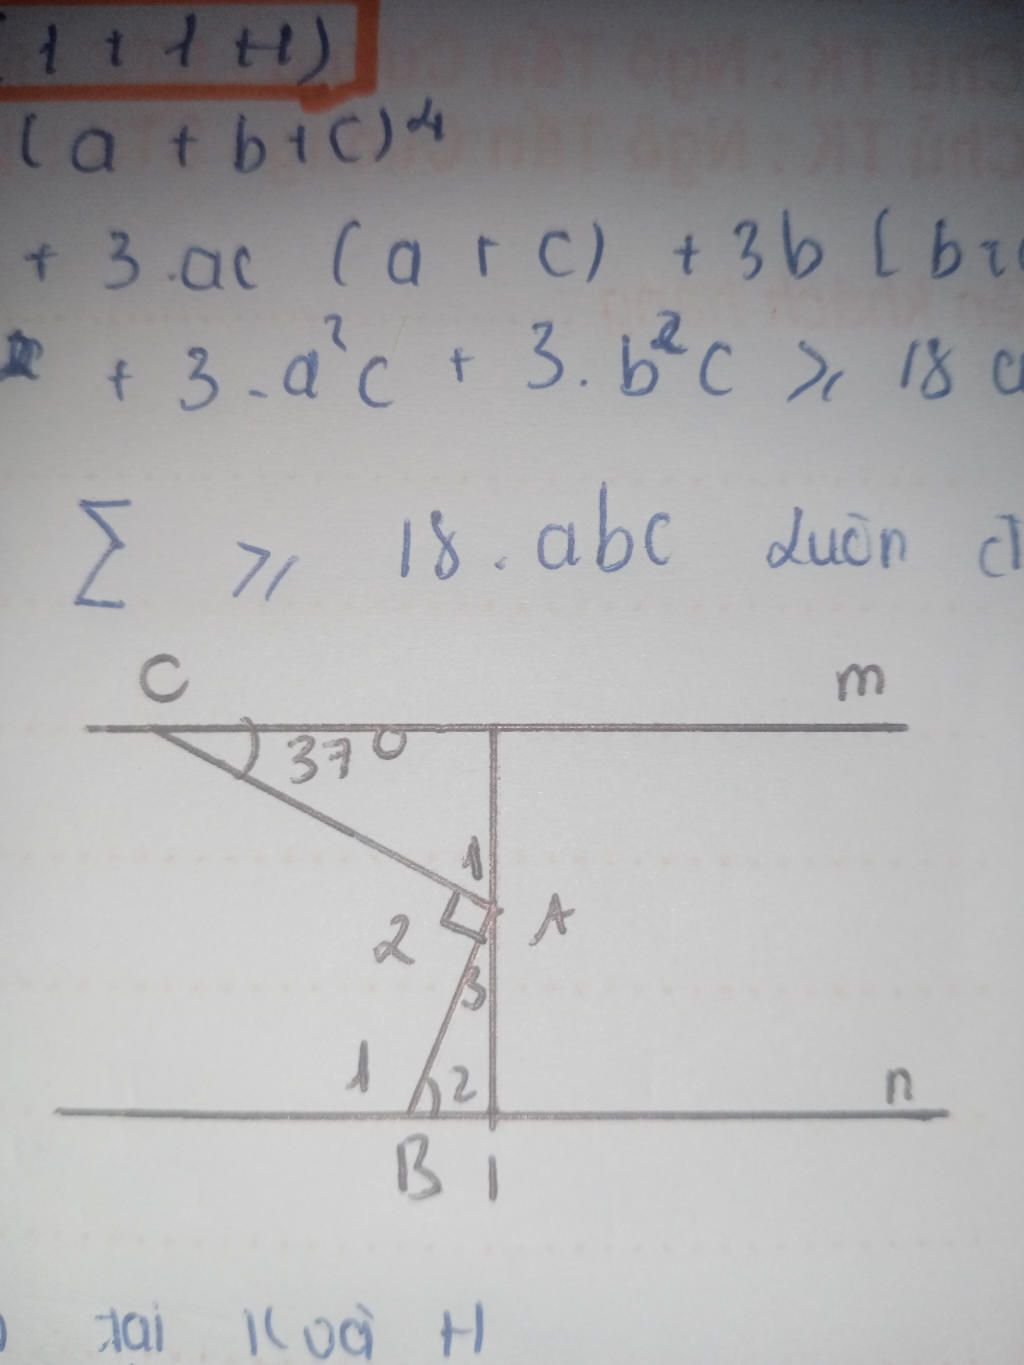 (1 + 1 + 1)
(a + b + c)
+ 3.ac (a + c) + 3b (b
+ 3.a²c + 3.b²c ⩾ 18
∑ ⩾ 18.abc luôn
C m
37°
1
2 A
3
1 2 n
B I
tại K và H